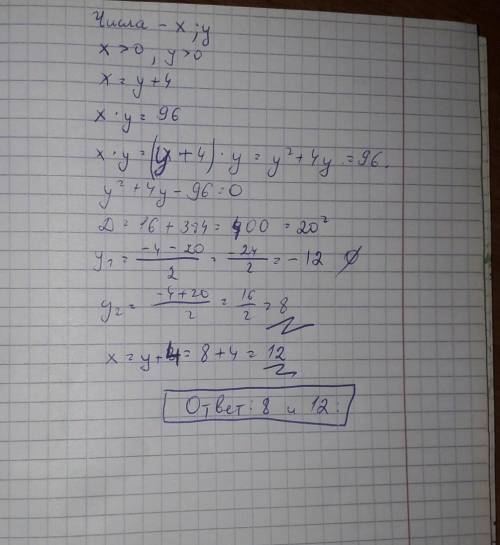 Числа - x ; y
x > 0 , y > 0
x = y + 4
x · y = 96
x · y = (y + 4) · y = y² + 4y = 96.
y² + 4y - 96 = 0
D = 16 + 384 = 400 = 20²
y₁ = (-4 - 20)/2 = -24/2 = -12 ∅
y₂ = (-4 + 20)/2 = 16/2 = 8
x = y + 4 = 8 + 4 = 12
Ответ: 8 и 12.